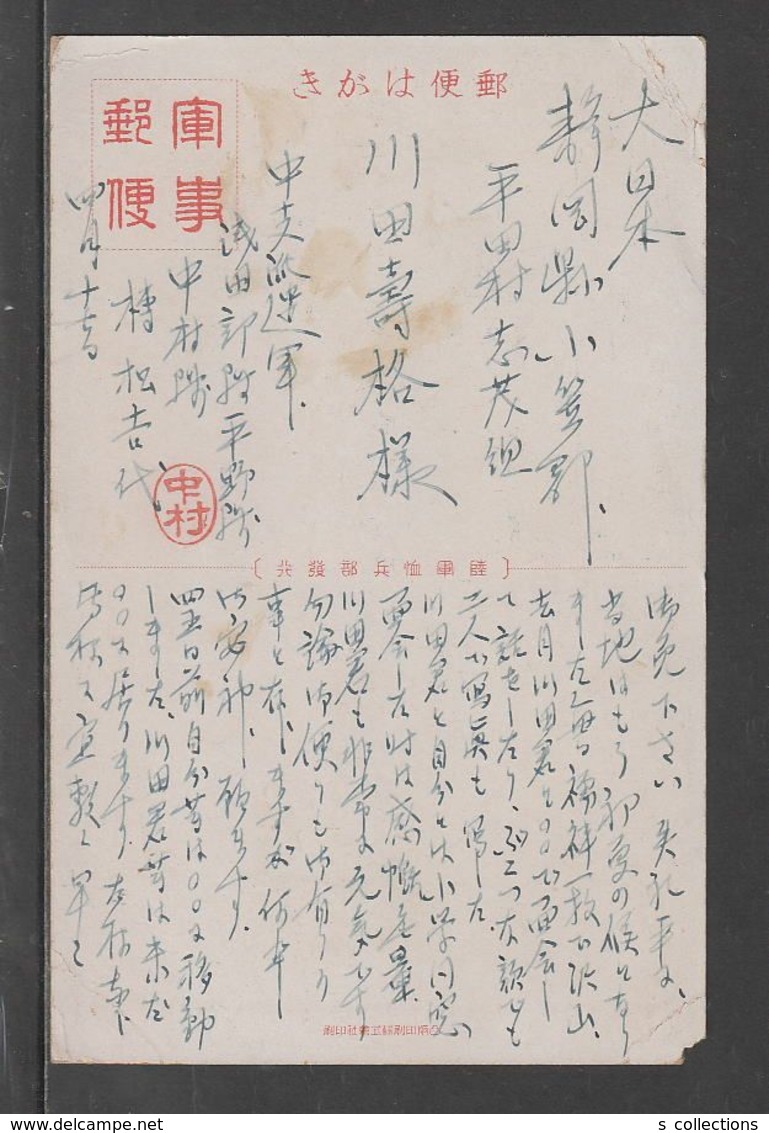 郵便はがき
軍事
郵便
大日本
静岡縣小笠郡、
平田村志茂組
川田壽格様
中支派遣軍、
浅田部隊平野隊
中村隊
松吉代
四月十
中村
〔陸軍恤兵部發行〕
御免下さい 失礼平に、
当地はもう初夏の候となり
ました毎日襦袢一枚で沢山、
去月川田君と〇〇で面会し
て話をしたり、
二人で寫真も寫した、
川田君と自分とは小学同窓
面会した時は感慨無量
川田君も非常に元気です
勿論御便りも御有り
事と存じますが何卒
御安神願ます
四五日前自分等は〇〇に移動
しました、川田君等は未だ
〇〇に居ります
皆様に宜敷く 早々
凸版印刷株式會社印刷
s collections